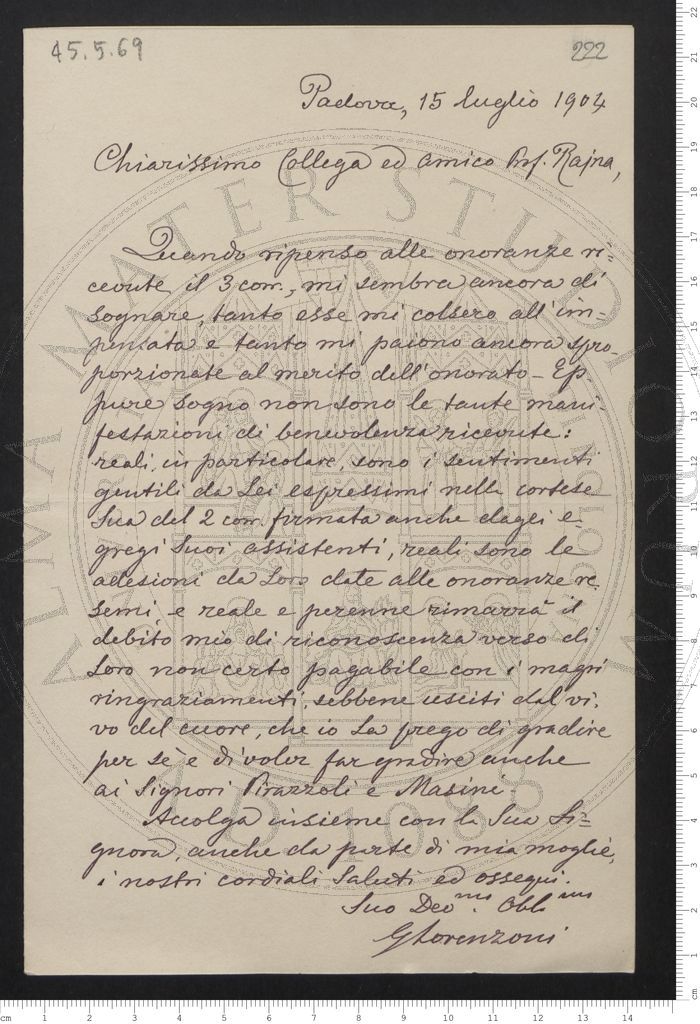 45.5.69
222
Padova, 15 luglio 1904
Chiarissimo Collega ed Amico Prof. Rajna,
Quando ripenso alle onoranze ri=
cevute il 3 corr., mi sembra ancora di
sognare, tanto esse mi colsero all'im=
pensata e tanto mi paiono ancora spro-
porzionate al merito dell'onorato – Ep-
pure sogno non sono le tante mani-
festazioni di benevolenza ricevute:
reali, in particolare, sono i sentimenti
gentili da Lei espressimi nella cortese
Sua del 2 corr. firmata anche dagli e-
gregi Suoi assistenti, reali sono le
adesioni da Loro date alle onoranze re-
semi, e reale e perenne rimarrà il
debito mio di riconoscenza verso di
Loro non certo pagabile con i magri
ringraziamenti, sebbene usciti dal vi-
vo del cuore, che io La prego di gradire
per sè e di voler far gradire anche
ai Signori Pirazzoli e Masini.
Accolga insieme con la Sua Si=
gnora, anche da parte di mia moglie,
i nostri cordiali saluti ed ossequi.
Suo Devmo. Obblmo
GLorenzoni
ALMA MATER STUDIORUM
A.D. 1088
cm 1 2 3 4 5 6 7 8 9 10 11 12 13 14
22
21
20
19
18
17
16
15
14
13
12
11
10
9
8
7
6
5
4
3
2
1
cm